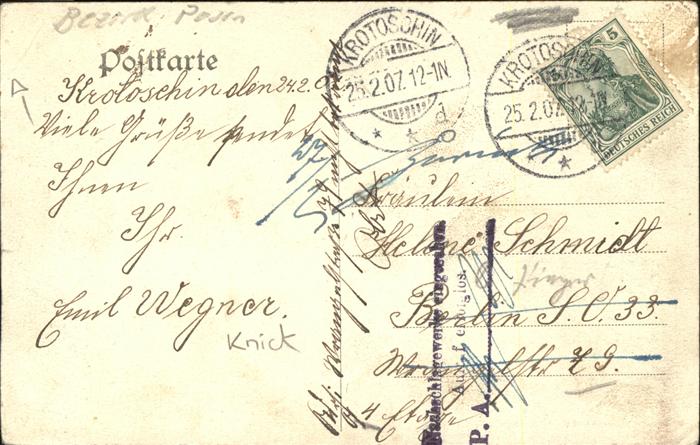 Bezirk Posen
Postkarte
Krotoschin den 24.2.
Viele Grüße sendet
Ihnen
Ihr.
Emil Wegner.
Knick
KROTOSCHIN
25.2.07.12-1N.
KROTOSCHIN
25.2.07.12-1N.
5
DEUTSCHES REICH
Fräulein
Helene Schmidt
Berlin S.O. 33.
Wrangelstr 79.
4 Etage
Ausruf erfolglos.
P. A.